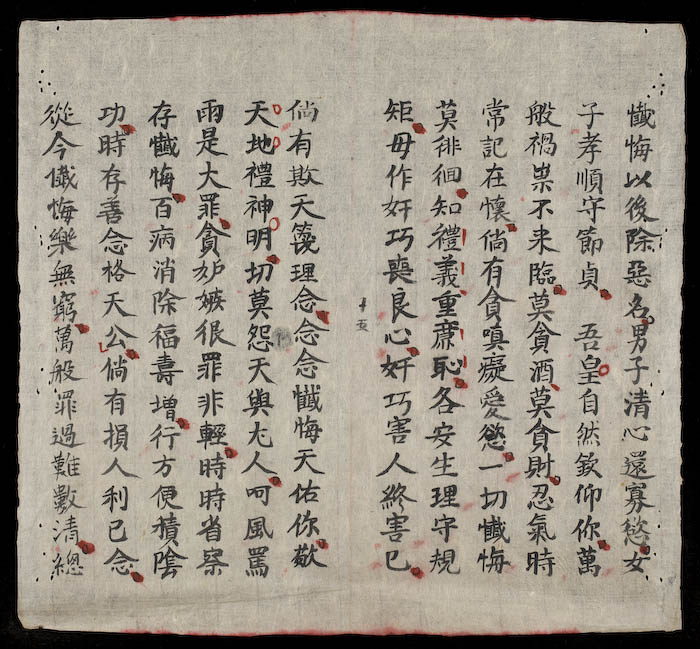 懺悔以後除惡名男子清心還寡慾女
子孝順守節貞 吾皇自然欽仰你萬
般禍祟不来臨莫貪酒莫貪財忍氣時
常記在懷倘有貪嗔癡愛慾一切懺悔
莫徘徊知禮義重廉恥各安生理守規
矩毋作奸巧喪良心奸巧害人終害己
十五
倘有欺天篾理念念念懺悔天佑你敬
天地禮神明切莫怨天與尤人呵風罵
雨是大罪貪妒嫉很罪非輕時時省察
存懺悔百病消除福壽增行方便積陰
功時存善念格天公倘有損人利己念
從今懺悔樂無窮萬般罪過難數清總